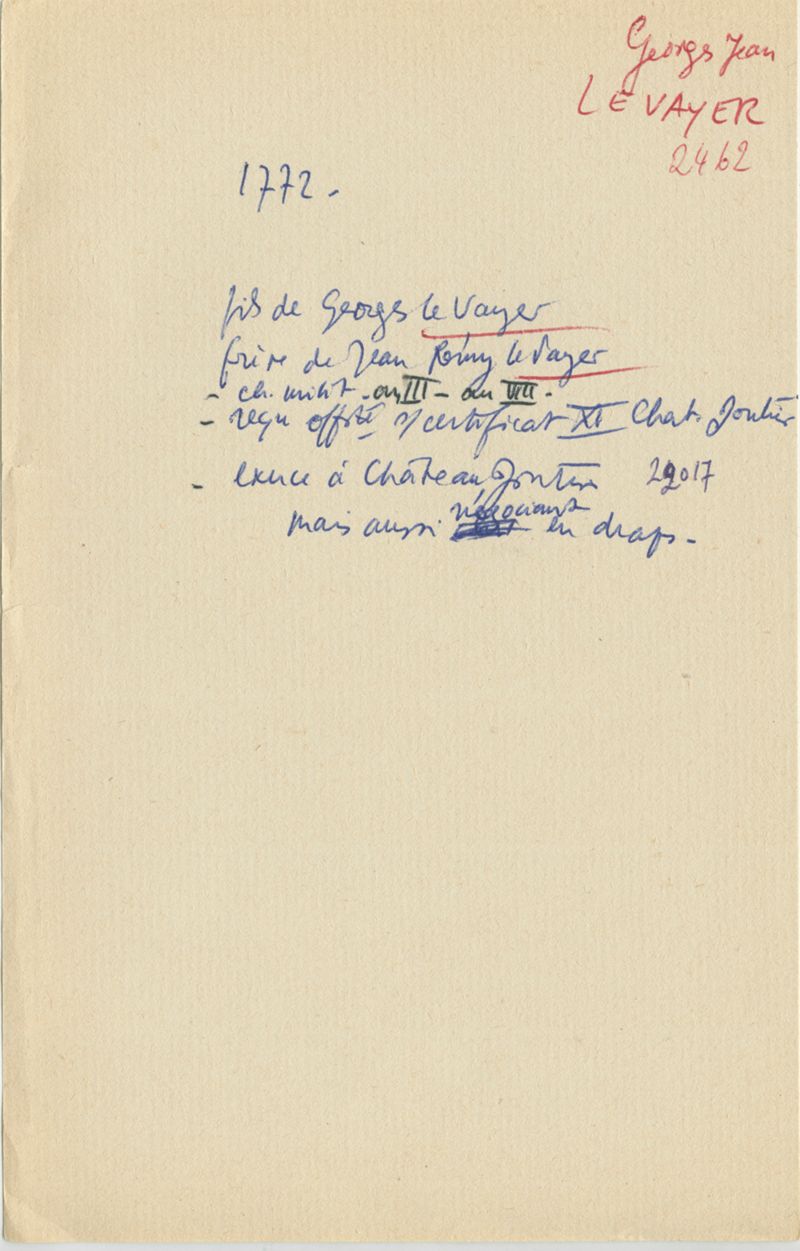 Georges Jean
LE VAYER
2462
1772 -
fils de Georges le Vayer
frère de Jean Rémy le Vayer
- ch. milit - an III - an VIII -
- reçu offté s/ certificat XI Chat. Gontier
- exerce à Château Gontier 29017
négociant
mais aussi en draps -